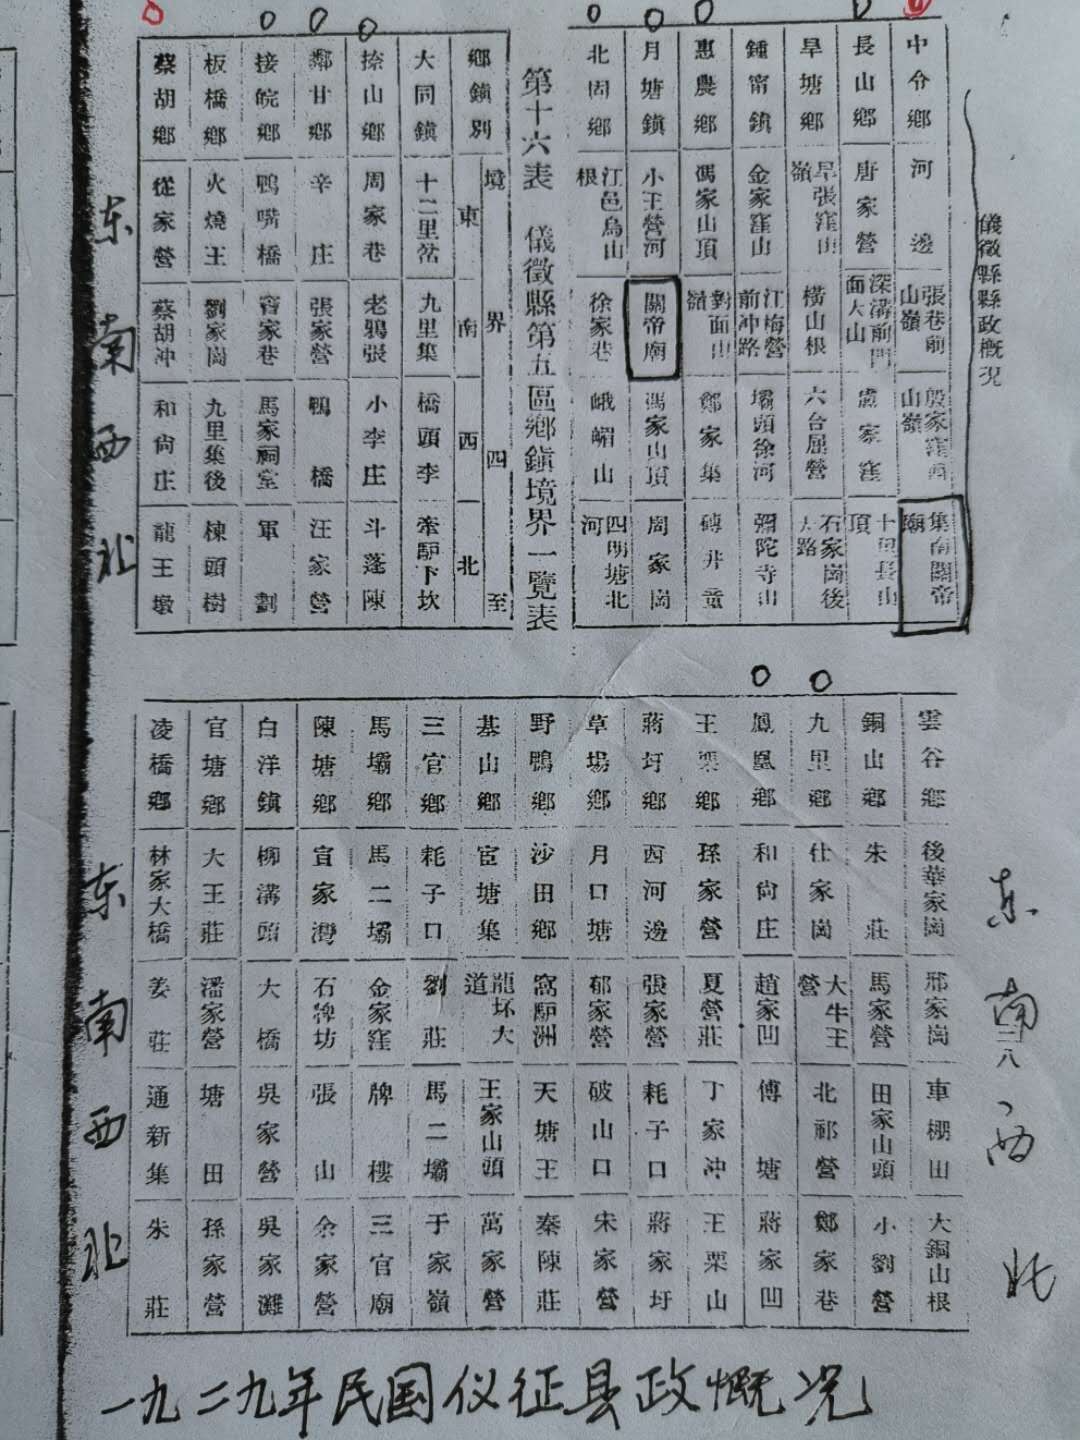 儀徵縣縣政概况
二八
中令鄉 河邊 張巷前山嶺 殷家窪西山嶺 集南關帝廟
長山鄉 唐家營 深溝前門面大山 盧家窪 十里長山頂
旱塘鄉 旱張窪山嶺 橫山根 六台屈營 石家崗後大路
鍾甯鎮 金家窪山 江梅營前冲路 壩頭徐河 彌陀寺山
惠農鄉 馮家山頂 對面山嶺 鄭家集 磚井童
月塘鎮 小王營河 關帝廟 馮家山頂 周家崗
北固鄉 江邑烏山根 徐家巷 峨嵋山 四明塘北河
第十六表 儀徵縣第五區鄉鎮境界一覽表
鄉鎮別 境界四至 東 南 西 北
大同鎮 十二里岔 九里集 橋頭李 牽馿下坎
捺山鄉 周家巷 老鴉張 小李庄 斗蓬陳
鄰甘鄉 辛庄 張家營 鴨橋 汪家營
接皖鄉 鴨嘴橋 窖家巷 馬家祠堂 軍劃
板橋鄉 火燒王 劉家崗 九里集後 棟頭樹
蔡胡鄉 從家營 蔡胡冲 和尚庄 龍王墩
雲谷鄉 後華家崗 邢家崗 車棚田 大銅山根
銅山鄉 朱莊 馬家營 田家山頭 小劉營
九里鄉 仕家崗 大牛王營 北祁營 鄭家巷
鳳凰鄉 和尚庄 趙家凹 傅塘 蔣家凹
王栗鄉 孫家營 夏營莊 丁家冲 王栗山
蔣圩鄉 西河邊 張家營 耗子口 蔣家圩
草場鄉 月口塘 郁家營 破山口 朱家營
野鴨鄉 沙田鄉 窩馿洲 天塘王 秦陳莊
基山鄉 宦塘集 龍坏大道 王家山頭 萬家營
三官鄉 耗子口 劉莊 馬二壩 于家嶺
馬壩鄉 馬二壩 金家窪 牌樓 三官廟
陳塘鄉 宣家灣 石牌坊 張山 余家營
白洋鎮 柳溝頭 大橋 吳家營 吳家灘
官塘鄉 大王莊 潘家營 塘田 孫家營
凌橋鄉 林家大橋 姜莊 通新集 朱莊
东
南
西
北
东
南
西
北
东
南
西
北
一九二九年民国仪征县政概况